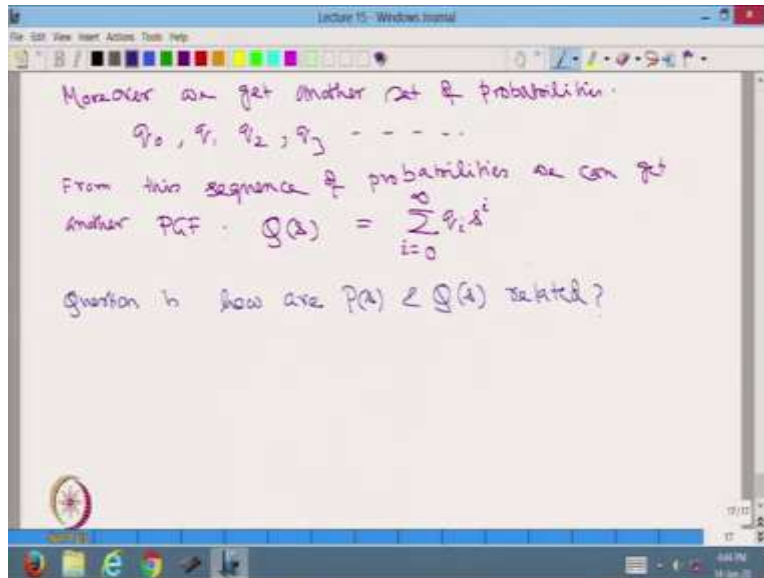 Lecture 15 - Windows Journal
File Edit View Insert Actions Tools Help
Moreover we get another set of probabilities.
q₀, q₁ q₂, q₃ - - - - -
From this sequence of probabilities we can get
another PGF. Q(s) = ∞∑i=0 qᵢ sⁱ
Question is how are P(s) & Q(s) related?
17/17
17
4:44 PM